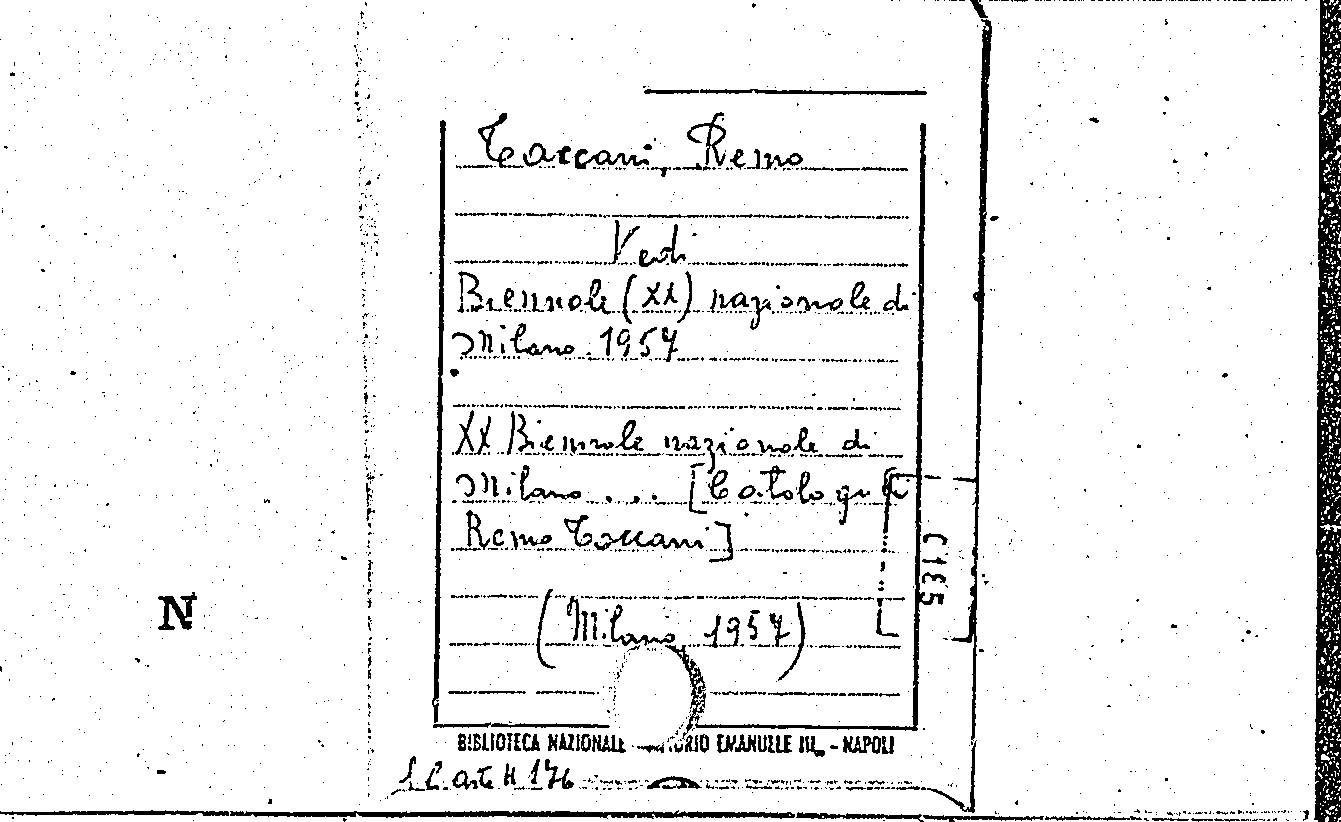 Taccani, Remo
Vedi
Biennale (XX) nazionale di
Milano 1957
XX Biennale nazionale di
Milano ... [Catalogo
Remo Taccani]
(Milano, 1957)
N
BIBLIOTECA NAZIONALE EMANUELE III - NAPOLI
H 176